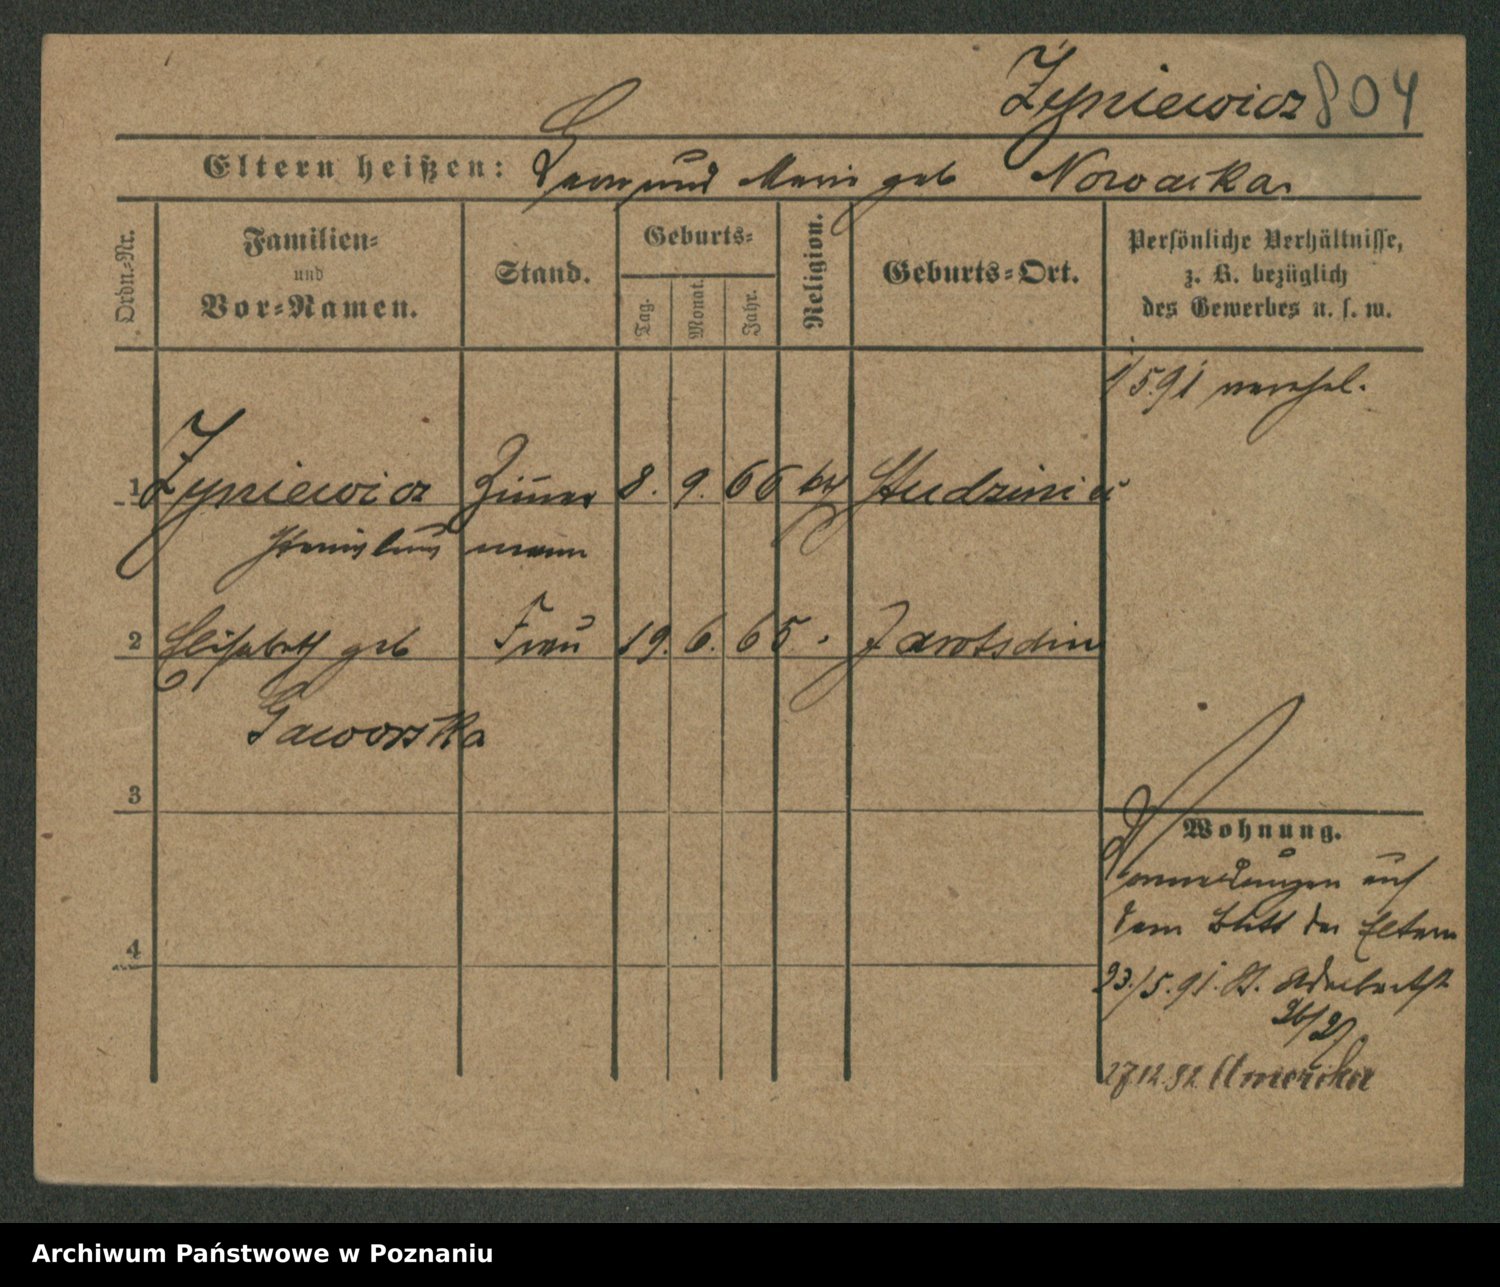 Zyniewicz 804
Eltern heißen: Leon und Marie geb Nowacka
Ordn.-Nr.
Familien-
und
Vor-Namen.
Stand.
Geburts-
Tag.
Monat.
Jahr.
Religion.
Geburts-Ort.
Persönliche Verhältnisse,
z. B. bezüglich
des Gewerbes u. s. w.
1/5.91 verehel.
1 Zyniewicz Zimmer 8. 9. 66 kth Studzinie
Stanislaus mann
2 Elisabeth geb Frau 19. 6. 65. Jarotschin
Gaworska
3
Wohnung.
Vormerkungen auf
dem Blatt der Eltern
4
23./5.91. St. Adalbertstr
26/27
27.12.92 Amerika
Archiwum Państwowe w Poznaniu